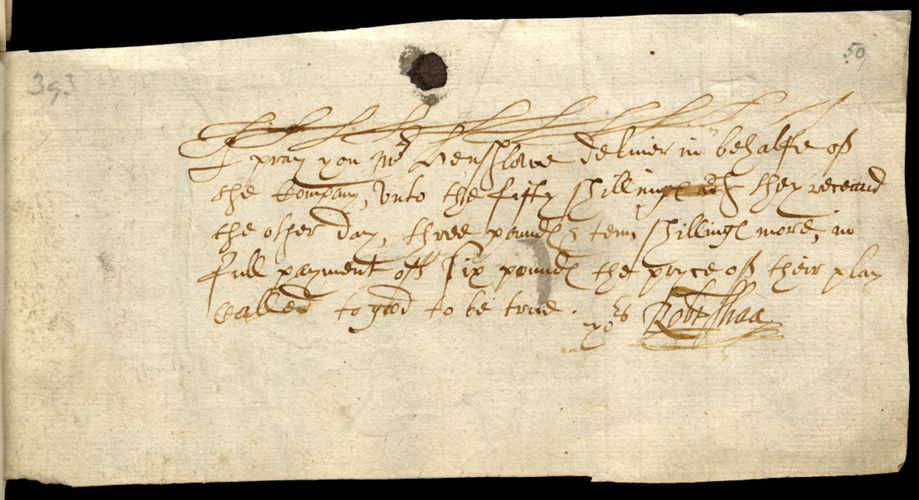 393
50
I pray you Mr Hensshlowe deliuer in behalfe of
the Company, vnto the fifty shillinges wch they receaud
the other day, three poundes & tenn shillinges more, in
full payment off six poundes the pryce of their play
called to good to be true. yors Robt Shaa